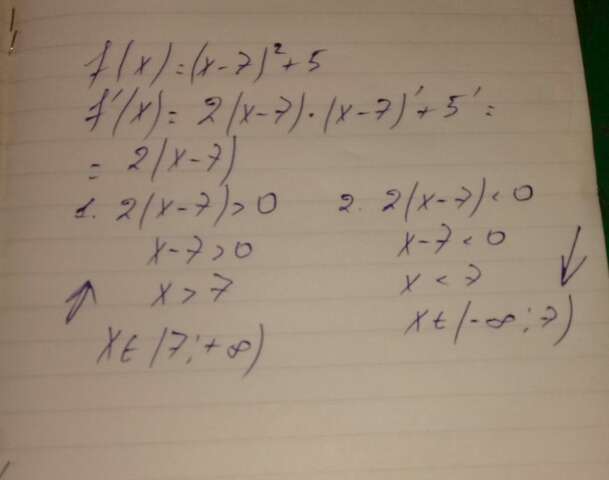 f(x)=(x-7)²+5
f'(x)= 2(x-7)·(x-7)'+5'=
= 2(x-7)
1. 2(x-7)>0
x-7>0
↑ x>7
x∈(7;+∞)
2. 2(x-7)<0
x-7<0 ↓
x<7
x∈(-∞;7)